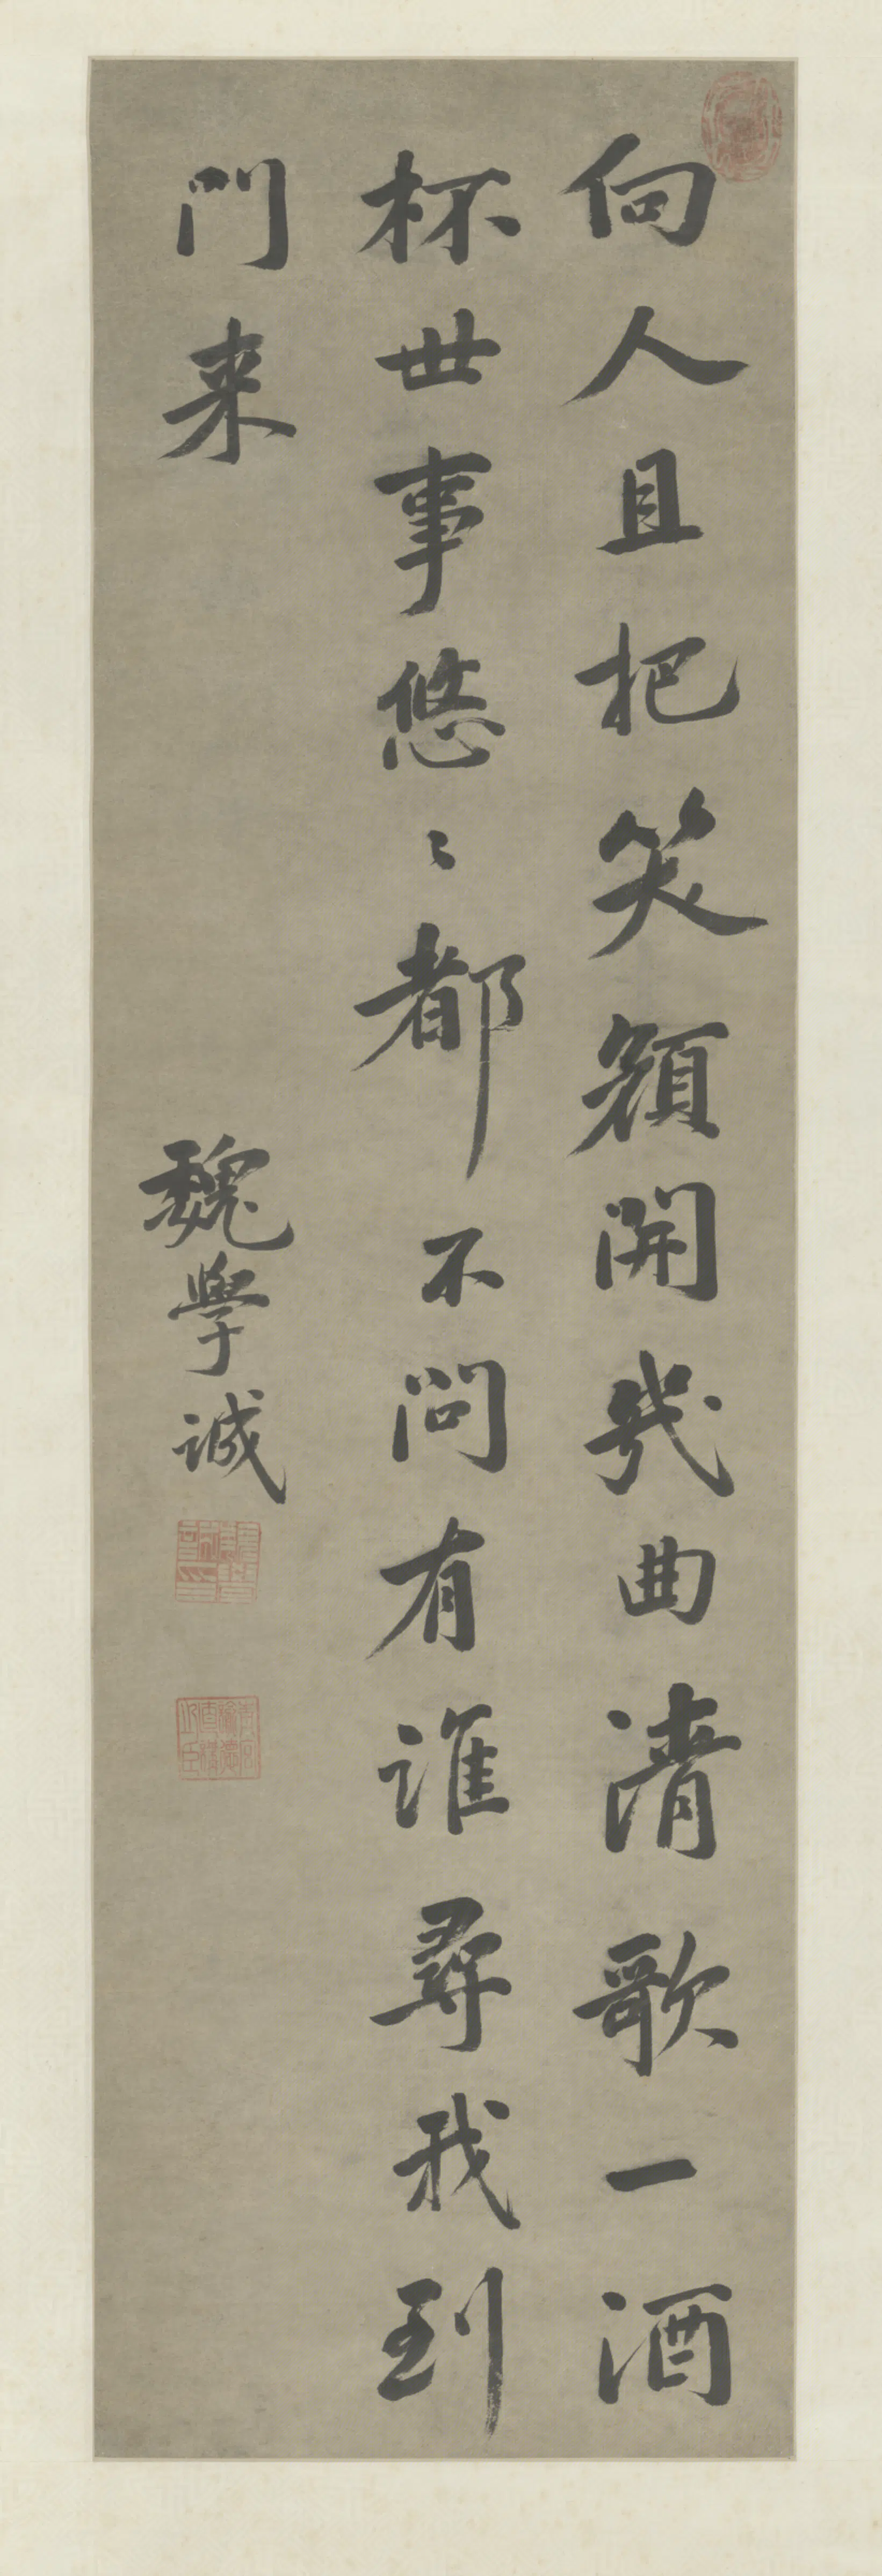 向人且把笑顏開幾曲清歌一酒
杯世事悠〻都不問有誰尋我到
門来
魏學誠